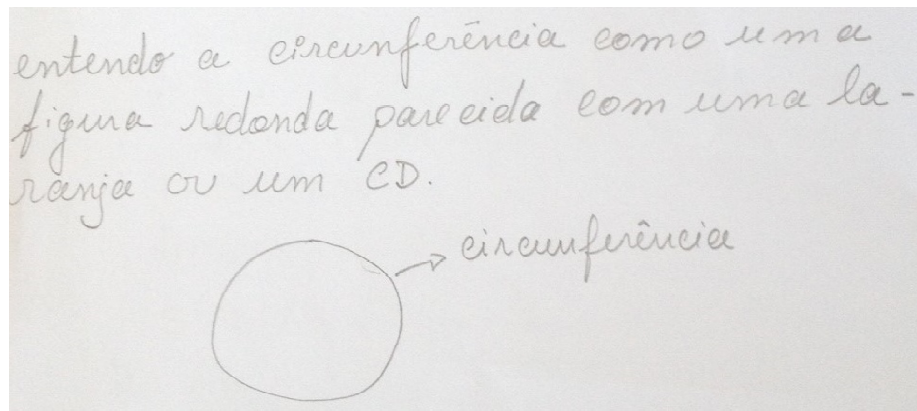 entendo a circunferência como uma
figura redonda parecida com uma la-
ranja ou um CD.
circunferência